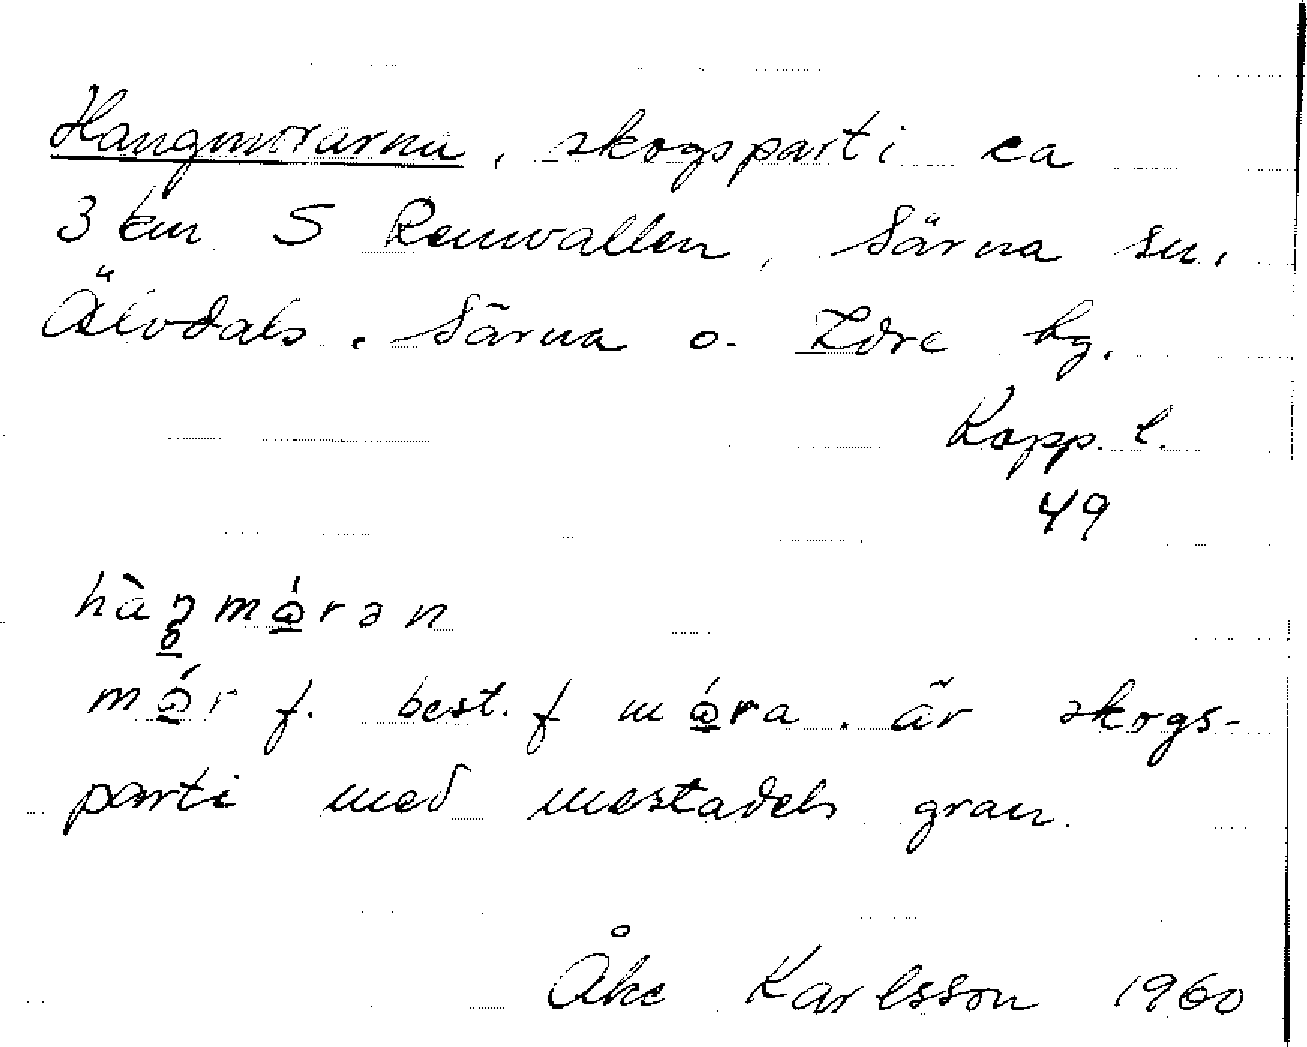 Hangmorarna, skogsparti ca
3 km S Renvallen, Särna sn,
Älvdals, Särna o. Idre hg.
Kopp. l.
49
mestadels gran.
f. best. f. är skogs-
parti med mestadels gran.
Åke Karlsson 1960